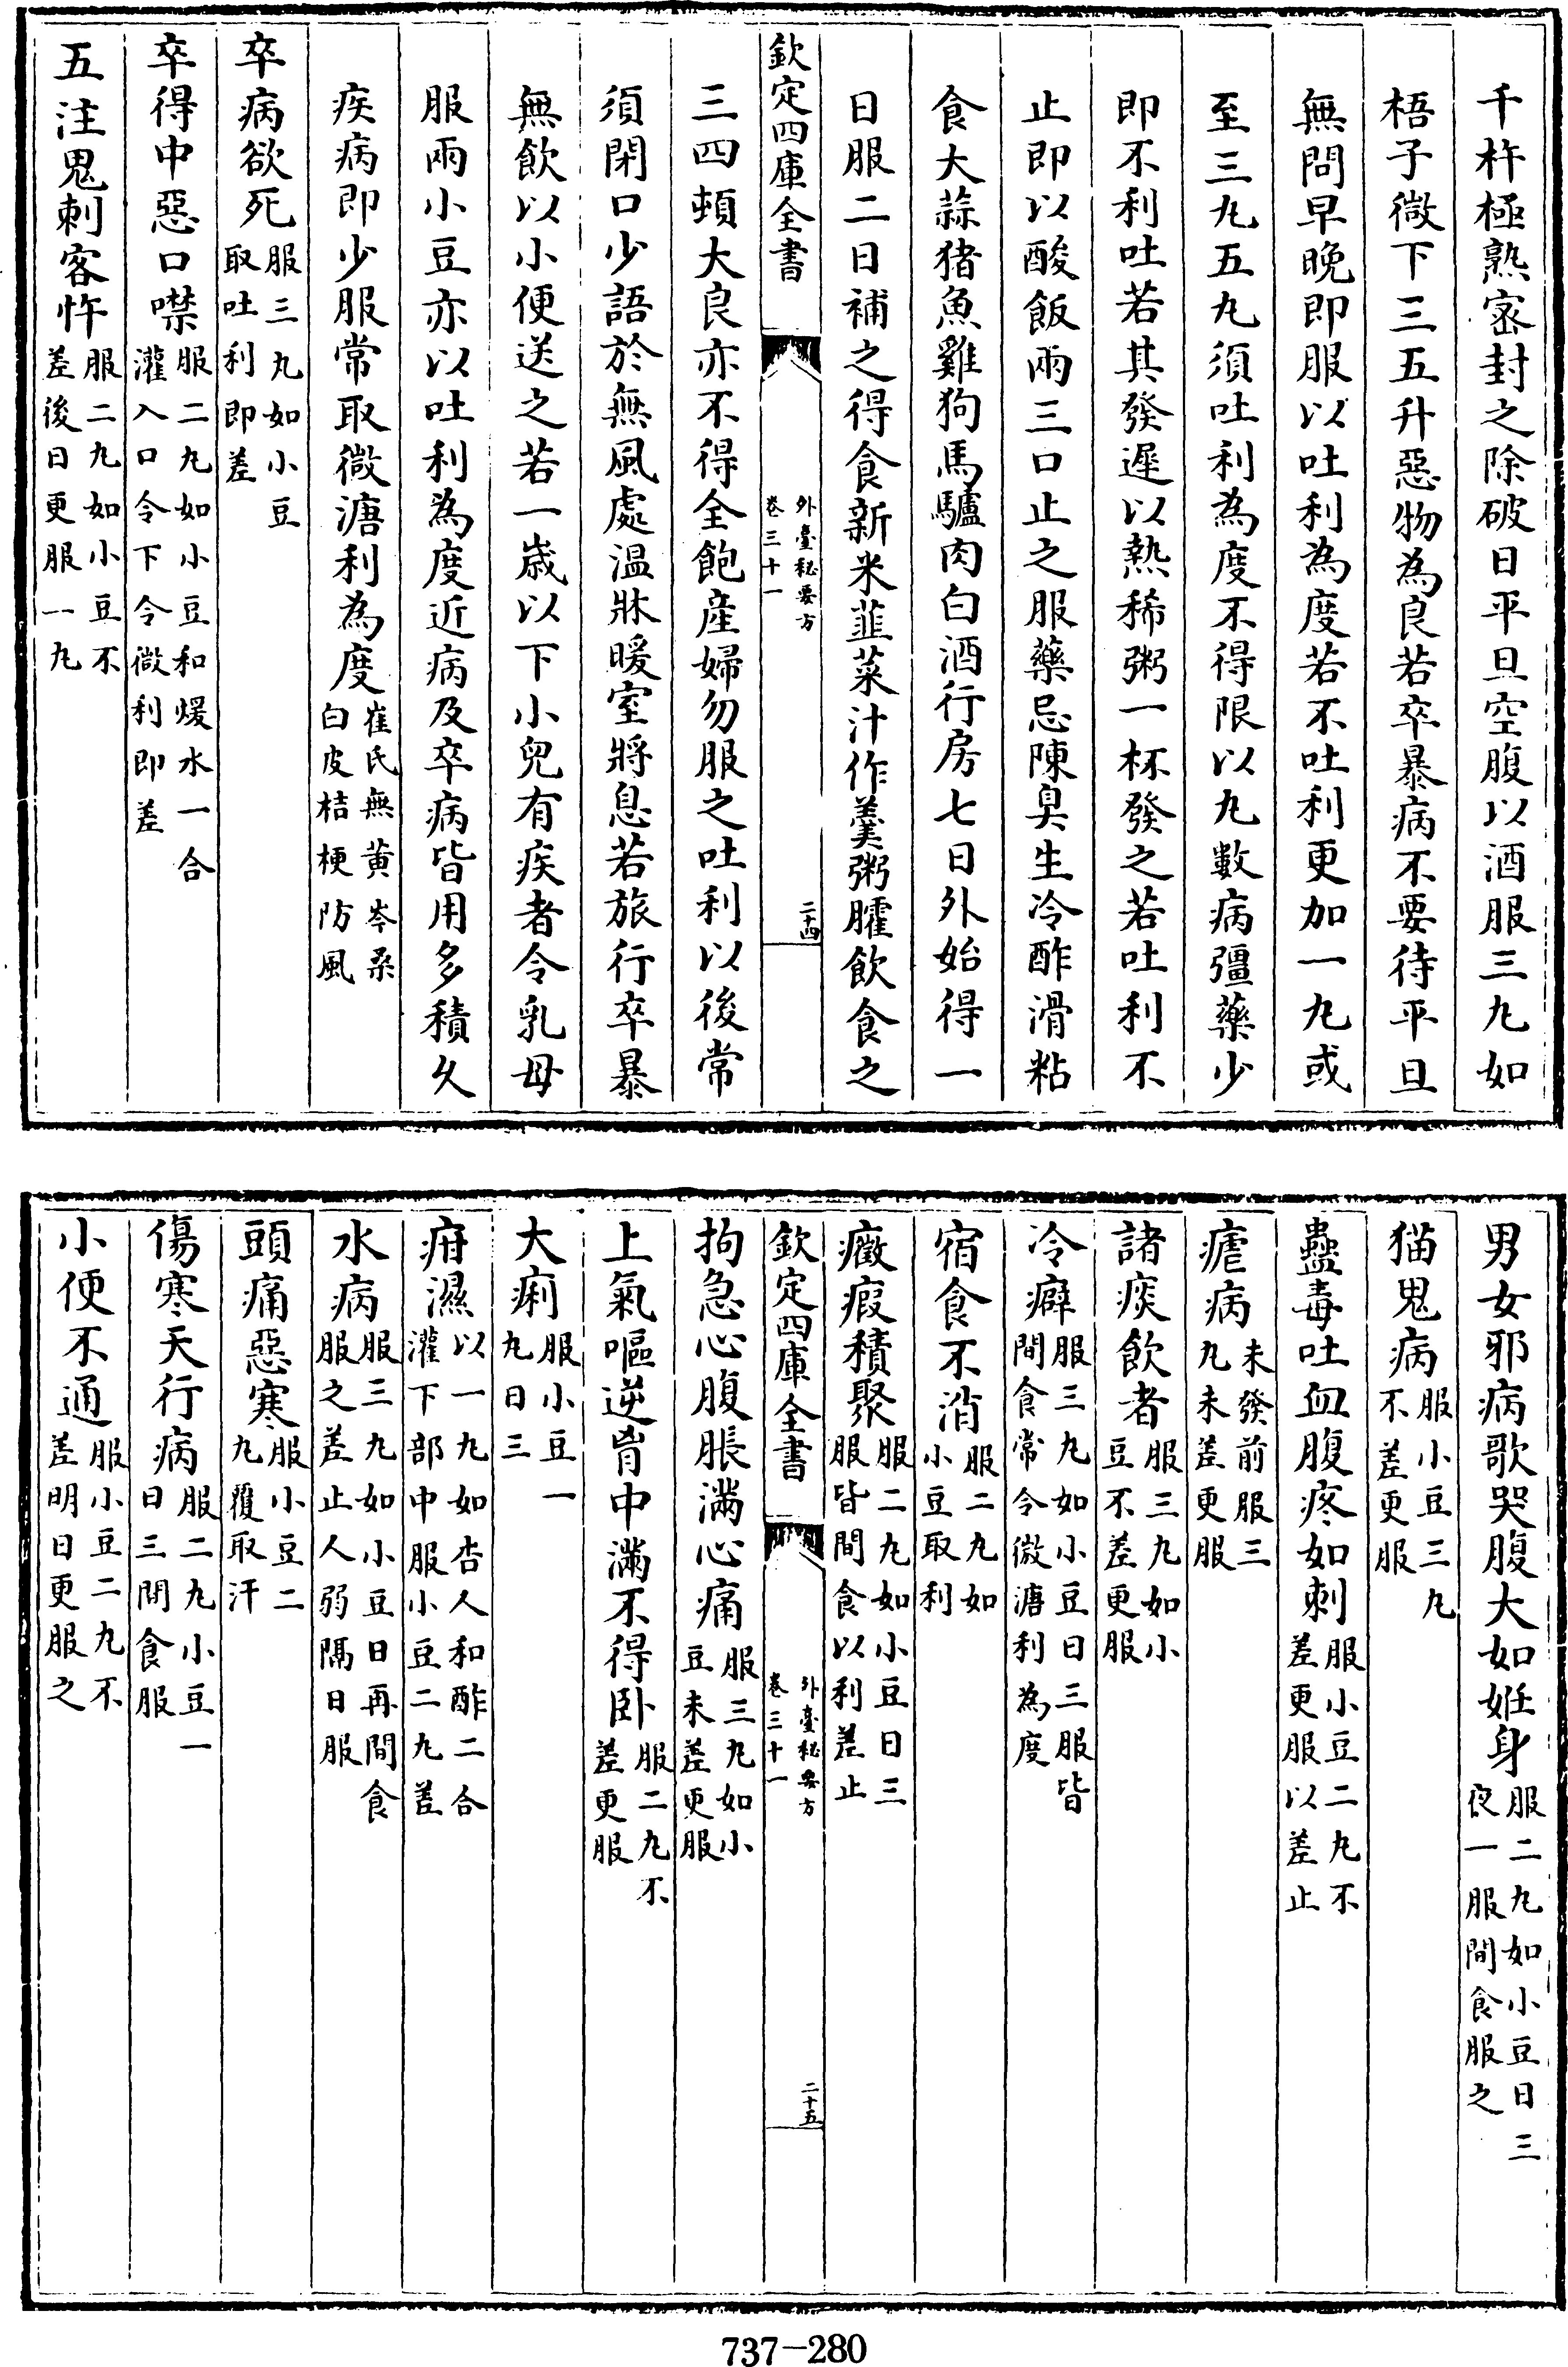 千杵極熟宻封之除破日平旦空腹以酒服三九如
梧子㣲下三五升惡物為良若卒暴病不要待平旦
無問早晚即服以吐利為度若不吐利更加一九或
至三九五九須吐利為度不得限以九數病彊藥少
即不利吐若其發遲以熱稀粥一杯發之若吐利不
止即以酸飯兩三口止之服藥忌陳臭生冷酢滑粘
食大蒜猪魚雞狗馬驢肉白酒行房七日外始得一
日服二日補之得食新米韮菜汁作羹粥臛飲食之
欽定四庫全書
外臺秘要方
卷三十一
二十四
三四頓大良亦不得全飽産婦勿服之吐利以後常
須閉口少語於無風處温牀暖室將息若旅行卒暴
無飲以小便送之若一歳以下小兒有疾者令乳母
服兩小豆亦以吐利為度近病及卒病皆用多積久
疾病即少服常取㣲溏利為度崔氏無黄岑桑
白皮桔梗防風
卒病欲死服三丸如小豆
取吐利即差
卒得中惡口噤服二九如小豆和煖水一合
灌入口令下令㣲利即差
五注鬼刺客忤服二九如小豆不
差後日更服一九
男女邪病歌哭腹大如妊身服二九如小豆日三
夜一服間食服之
猫鬼病服小豆三九
不差更服
蠱毒吐血腹疼如刺服小豆二九不
差更服以差止
瘧病未發前服三
九未差更服
諸痰飲者服三九如小
豆不差更服
冷癖服三九如小豆日三服皆
間食常令㣲溏利為度
宿食不消服二九如
小豆取利
癥瘕積聚服二九如小豆日三
服皆間食以利差止
欽定四庫全書
外臺秘要方
卷三十一
二十五
拘急心腹脹滿心痛服三九如小
豆未差更服
上氣嘔逆胷中滿不得卧服二九不
差更服
大痢服小豆一
九日三
疳濕以一九如杏人和酢二合
灌下部中服小豆二九差
水病服三九如小豆日再間食
服之差止人弱隔日服
頭痛惡寒服小豆二
九覆取汗
傷寒天行病服二九小豆一
日三間食服
小便不通服小豆二九不
差明日更服之
737-280